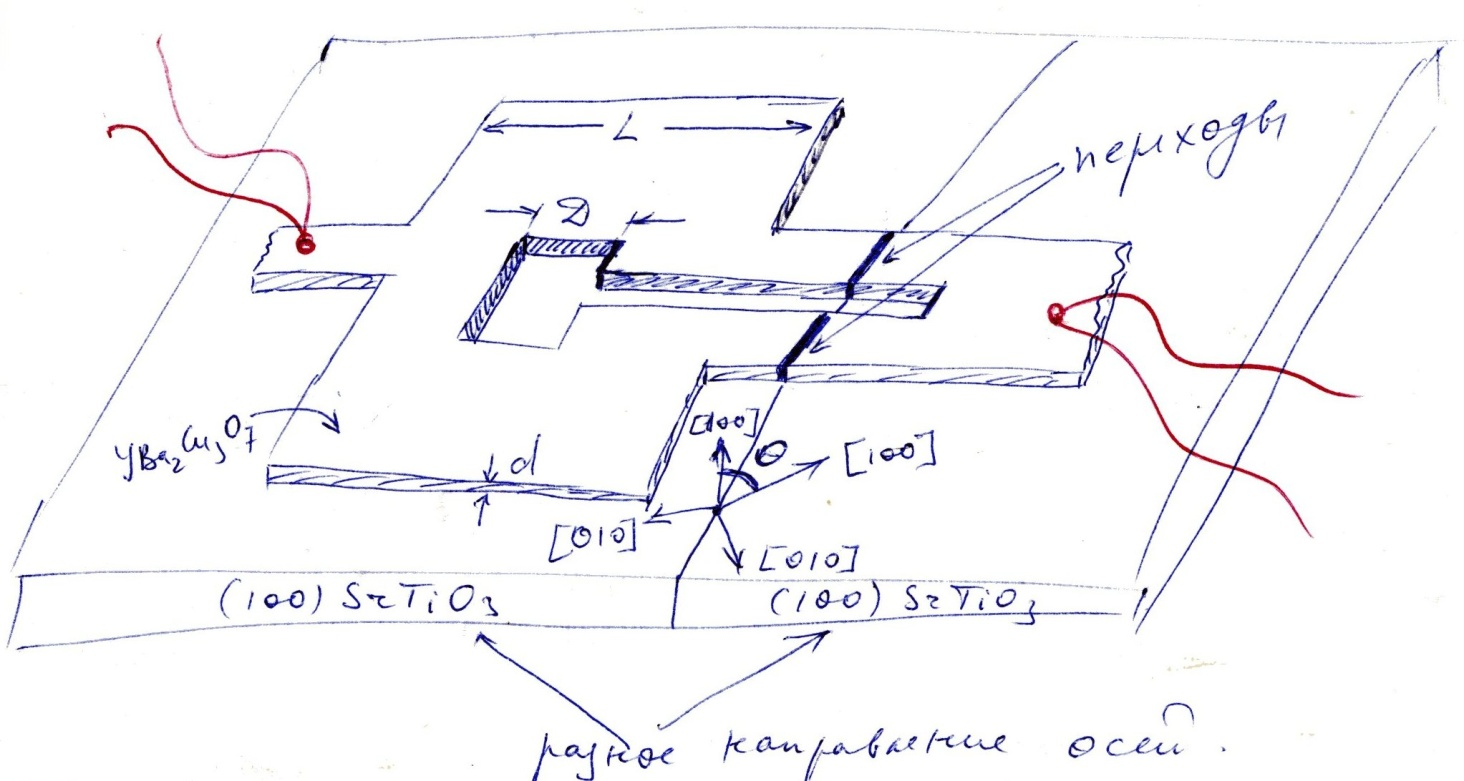 L
переходы
D
YBa₂Cu₃O₇
d
[100]
Θ
[100]
[010]
[010]
(100) SrTiO₃
(100) SrTiO₃
разное направление осей.